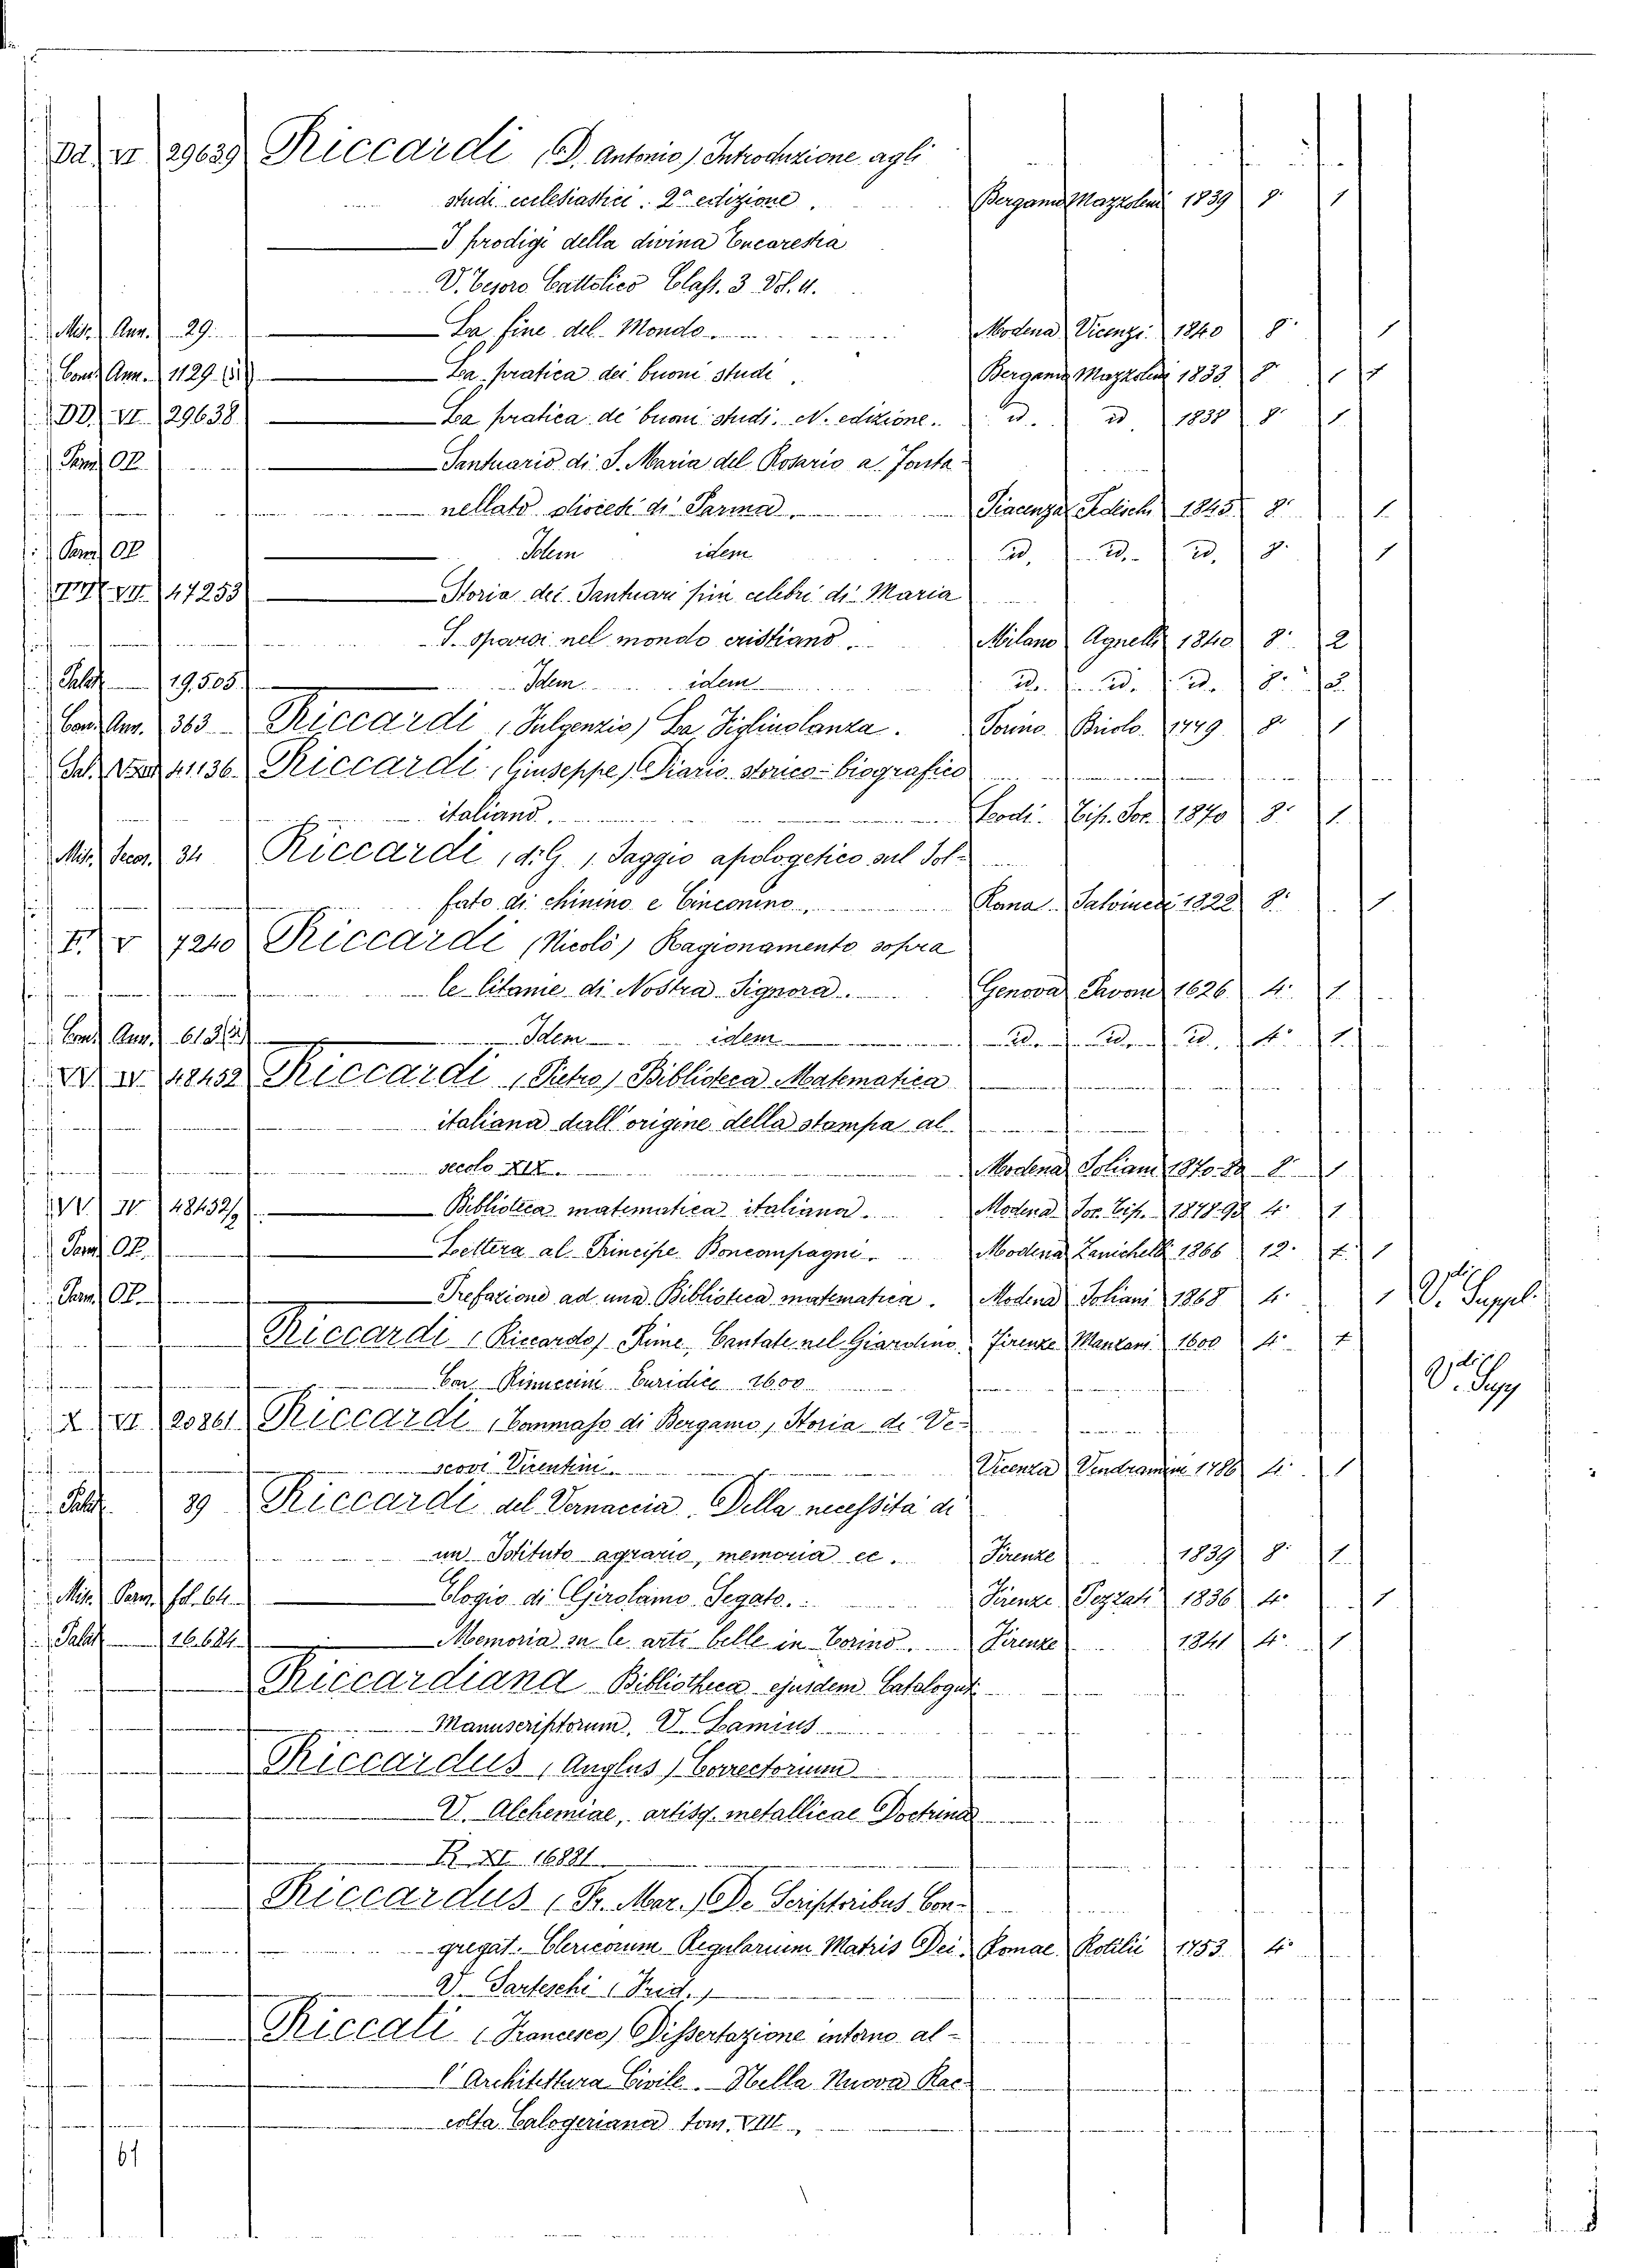 Dd VI 29639 Riccardi (D. Antonio) Introduzione agli
studi ecclesiastici. 2a edizione. Bergamo Mazzoleni 1839 8° 1
I prodigi della divina Eucarestia
V. Tesoro Cattolico Class. 3 Vol. 4.
Misc. Ann. 29. La fine del Mondo Modena Vicenzi 1840 8° 1
Conv. Ann. 1129 La pratica dei buoni studi. Bergamo Mazzoleni 1833 8° 1
DD. VI 29638 La pratica de buoni studi. N. edizione. id. id. 1838 8° 1
Parm. OP. Santuario di S. Maria del Rosario a Fonta-
nellato diocesi di Parma. Piacenza Tedeschi 1845 8° 1
Parm. OP Idem idem id. id. id. 8° 1
VII. 47253 Storia dei Santuari più celebri di Maria
S. sparsi nel mondo cristiano. Milano Agnelli 1840 8° 2
Palat. 19.505. Idem idem id. id. id. 8° 2
Conv. Ann. 363 Riccardi (Fulgenzio) La Figlinolanza. Torino Briolo 1779 8° 1
41136. Riccardi (Giuseppe) Diario storico-biografico
italiano. Lodi. Tip. Soc. 1870 8° 1
Misc. Secor. 34 Riccardi (di G.) Saggio apologetico sul Sol-
fato di chinino e Cinconino. Roma Salviucci 1822 8° 1
F. V 7240 Riccardi (Nicolò) Ragionamento sopra
le litanie di Nostra Signora. Genova Pavoni 1626 4° 1
Conv. Ann. 613(2) Idem idem id. id. id. 4° 1
VV IV. 48452 Riccardi (Pietro) Biblioteca Matematica
italiana dall'origine della stampa al
secolo XIX. Modena Soliani 1870-80 8° 1
VV IV 48452/9 Biblioteca matematica italiana. Modena Soc. Tip. 1878-93 4° 1
Parm. OP. Lettera al Principe Boncompagni. Modena Zanichelli 1866 12° 1
Parm. OP. Prefazione ad una Biblioteca matematica. Modena Soliani 1868 4° 1 V. Suppl.
Riccardi (Riccardo) Rime, Cantate nel Giardino Firenze Manzani 1600 4° 1
Con Rinuccini Euridice 1600 V. Supp
X VI 20861 Riccardi (Tommaso di Bergamo) Storia de Ve-
scovi Vicentini. Vicenza Vendramini 1786 4° 1
Palat. 39 Riccardi del Vernaccia. Della necessità di
un Istituto agrario, memoria ec. Firenze 1839 8° 1
Misc. Parm. fol. 64 Elogio di Girolamo Segato. Firenze Pezzati 1836 4° 1
Palat. 16.624. Memoria su le arti belle in Torino. Firenze 1841 4° 1
Riccardiana Bibliotheca ejusdem Catalogus
Manuscriptorum. V. Lamius
Riccardus (Anglus) Correctorium
V. Alchemiae, artisq. metallicae Doctrina
R. XI. 16881
Riccardus (Fr. Mar.) De Scriptoribus Con-
gregat. Clericorum Regularium Matris Dei. Romae Rotilii 1753 4°
V. Sarteschi (Frid.)
Riccati (Francesco) Dissertazione intorno al-
l'Architettura Civile. Nella Nuova Rac-
colta Calogeriana tom. VIII.
61